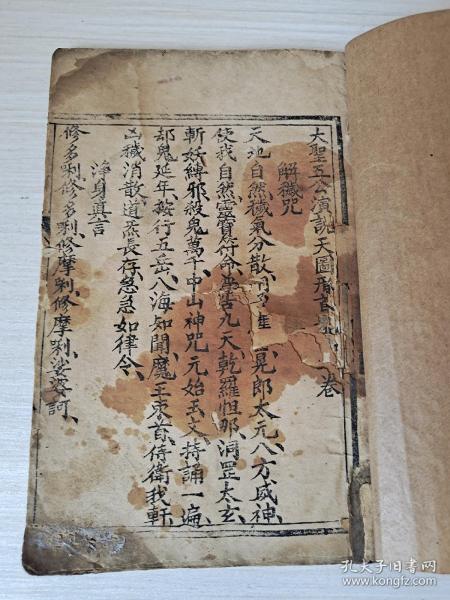 大聖五公演說天圖形 卷
解穢咒
天地自然穢氣分散、洞 晃郎太元、八方威神、
使我自然、靈寶符命、普告九天、乾羅怛那、洞罡太玄、
斬妖縛邪、殺鬼萬千、中山神咒、元始玉文、持誦一遍、
却鬼延年、按行五岳、八海知聞、魔王束首、侍衛我軒、
凶穢消散、道炁長存、急急如律令、
淨身真言
修多唎、修多唎、修摩唎、修摩唎、娑婆訶、
孔夫子旧书网
www.kongfz.com